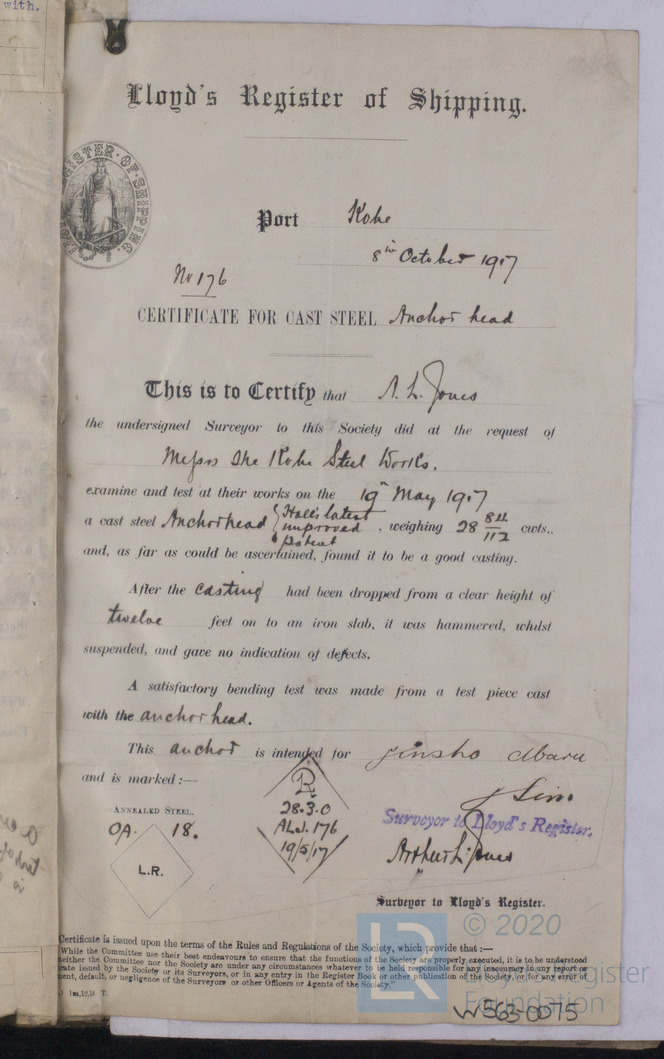 with.
Lloyd's Register of Shipping.
Port Kobe
8th October 1917
No 176
CERTIFICATE FOR CAST STEEL Anchor head
This is to Certify that A. L. Jones
the undersigned Surveyor to this Society did at the request of
Messrs The Kobe Steel Works.
examine and test at their works on the 19th May 1917
a cast steel Anchorhead { Hall's latest improved patent , weighing 28 84/112 cwts.,
and, as far as could be ascertained, found it to be a good casting.
After the casting had been dropped from a clear height of
twelve feet on to an iron slab, it was hammered, whilst
suspended, and gave no indication of defects.
A satisfactory bending test was made from a test piece cast
with the anchor head.
This anchor is intended for Jinsho Maru
and is marked :—
ANNEALED STEEL.
OA. 18.
L.R.
28.3.0
AL.J. 176
19/5/17
Surveyor to Lloyd's Register.
Arthur L. Jones
Surveyor to Lloyd's Register.
Certificate is issued upon the terms of the Rules and Regulations of the Society, which provide that :—
"While the Committee use their best endeavours to ensure that the functions of the Society are properly executed, it is to be understood
neither the Committee nor the Society are under any circumstances whatever to be held responsible for any inaccuracy in any report or
issued by the Society or its Surveyors, or in any entry in the Register Book or other publication of the Society, or for any error of
default, or negligence of the Surveyors or other Officers or Agents of the Society."
LR © 2020
Lloyd's Register
Foundation
W563-0075